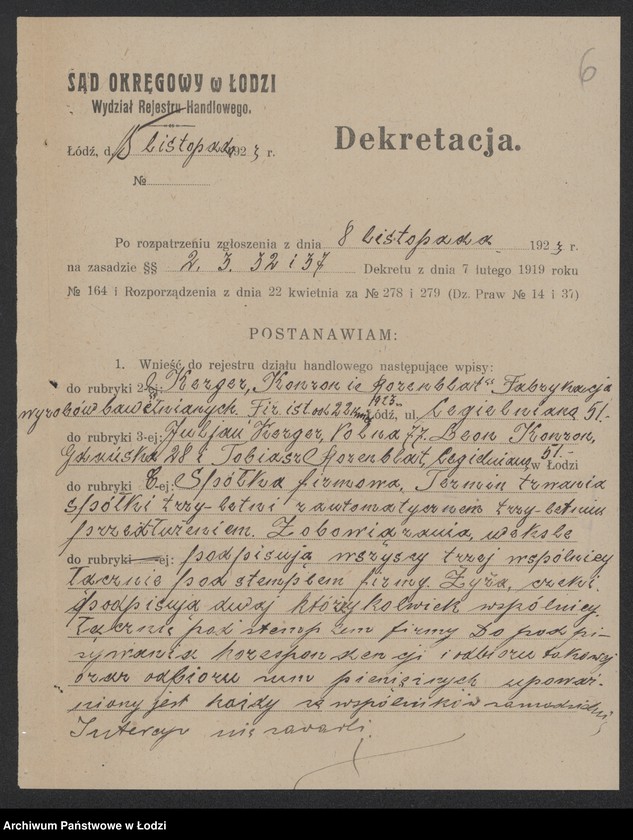 6
SĄD OKRĘGOWY w ŁODZI
Wydział Rejestru Handlowego.
Dekretacja.
Łódź, d. 8 listopada 1923 r.
№
Po rozpatrzeniu zgłoszenia z dnia 8 listopada 1923 r.
na zasadzie §§ 2. 3. 32 i 37 Dekretu z dnia 7 lutego 1919 roku
№ 164 i Rozporządzenia z dnia 22 kwietnia za № 278 i 279 (Dz. Praw № 14 i 37)
POSTANAWIAM:
1. Wnieść do rejestru działu handlowego następujące wpisy:
do rubryki 2-ej: „Kerger, Konron i e Rozenblat" Fabrykacja
wyrobów bawełnianych. Fir. ist. od 22 1923. Łódź, ul. Cegielniana 51.-
do rubryki 3-ej: Juljan Kerger, Wolna 77. Leon Konron,
Gdańska 28 i Tobiasz Rozenblat, Cegielniana 51.- w Łodzi
do rubryki 6-ej: Spółka firmowa. Termin trwania
spółki trzy-letni z automatycznem trzy-letniem
przedłużeniem. Zobowiązania, weksle
do rubryki -ej: podpisują wszyscy trzej wspólnicy
łącznie pod stemplem firmy. Żyra, czeki
podpisują dwaj którzykolwiek wspólnicy
łącznie pod stemplem firmy Do podpi-
sywania korespondencji i odbioru takowej
oraz odbioru sum pieniężnych upoważ-
niony jest każdy ze wspólników samodzielnie
Intercyz nie zawarli.
Archiwum Państwowe w Łodzi